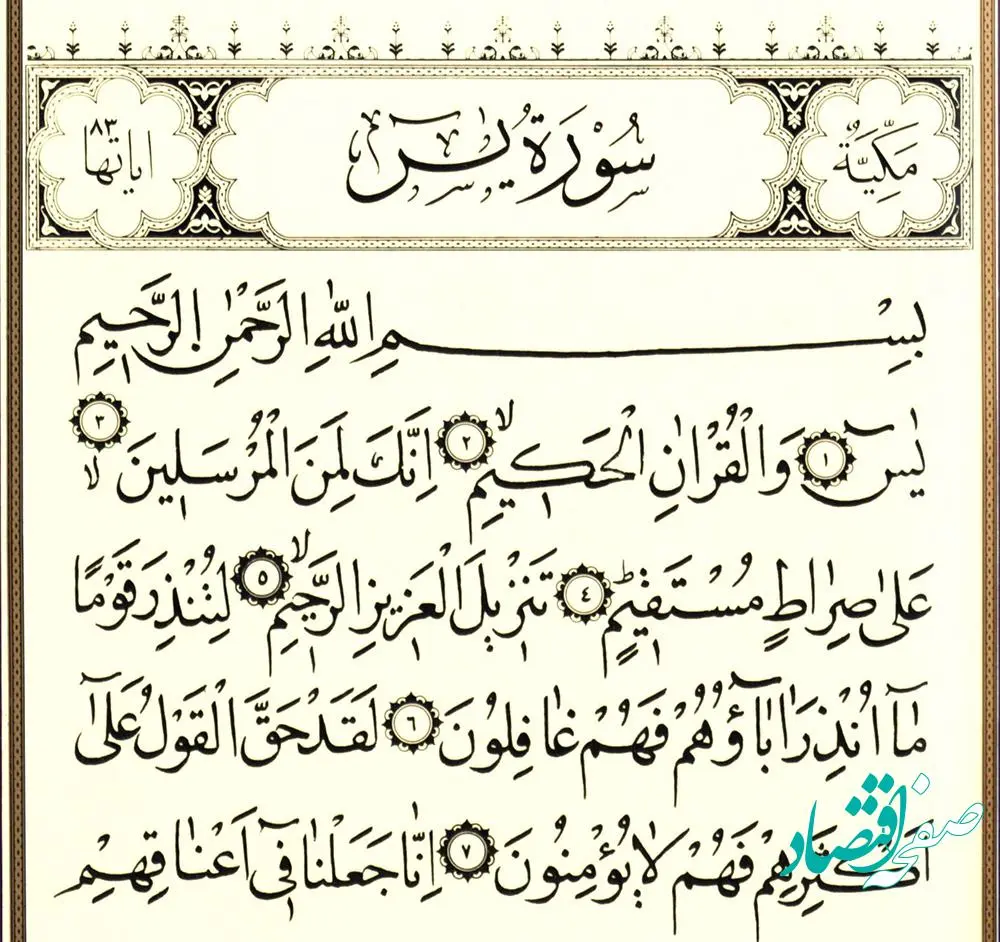 مَكِّيَّةٌ
سُوْرَةُ يٰسٓ
اياتها ٨٣
بِسْمِ اللّٰهِ الرَّحْمٰنِ الرَّحيمِ
يٰسٓ ١ وَالْقُرْاٰنِ الْحَكيمِ ٢ اِنَّكَ لَمِنَ الْمُرْسَلينَ ٣
عَلٰى صِرَاطٍ مُسْتَقيمٍ ٤ تَنْزيلَ الْعَزيزِ الرَّحيمِ ٥ لِتُنْذِرَ قَوْمًا
مَٓا اُنْذِرَ اٰبَٓاؤُهُمْ فَهُمْ غَافِلُونَ ٦ لَقَدْ حَقَّ الْقَوْلُ عَلٰٓى
اَكْثَرِهِمْ فَهُمْ لَا يُؤْمِنُونَ ٧ اِنَّا جَعَلْنَا فٓى اَعْنَاقِهِمْ
صفحه اقتصاد